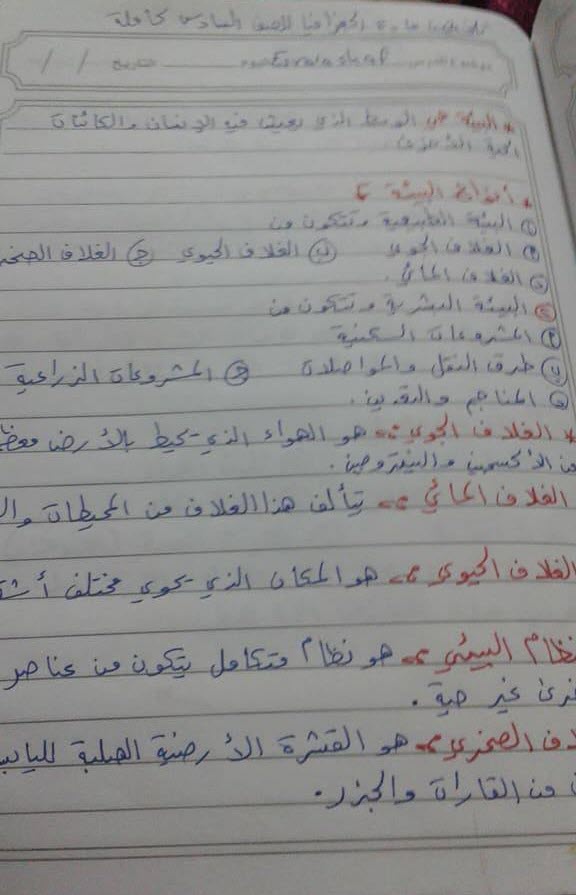 تلخيص مادة الجغرافيا للصف السادس كاملة
التاريخ / /
* البيئة هي الوسط الذي يعيش فيه الإنسان والكائنات
الحية الأخرى.
* أنواع البيئة
① البيئة الطبيعية وتتكون من
أ الغلاف الجوي ب الغلاف الحيوي ج الغلاف الصخر
د الغلاف المائي.
② البيئة البشرية وتتكون من
أ المشروعات السكنية
ب طرق النقل والمواصلات ج المشروعات الزراعية
د المناجم والتعدين.
* الغلاف الجوي :- هو الهواء الذي يحيط بالأرض معظ
من الأكسجين والنيتروجين.
الغلاف المائي :- يتألف هذا الغلاف من المحيطات وال
الغلاف الحيوي :- هو المكان الذي يحوي مختلف أشك
نظام البيئي :- هو نظام متكامل يتكون من عناصر
خرى غير حية.
لاف الصخري :- هو القشرة الأرضية الصلبة لليابس
من القارات والجزر.